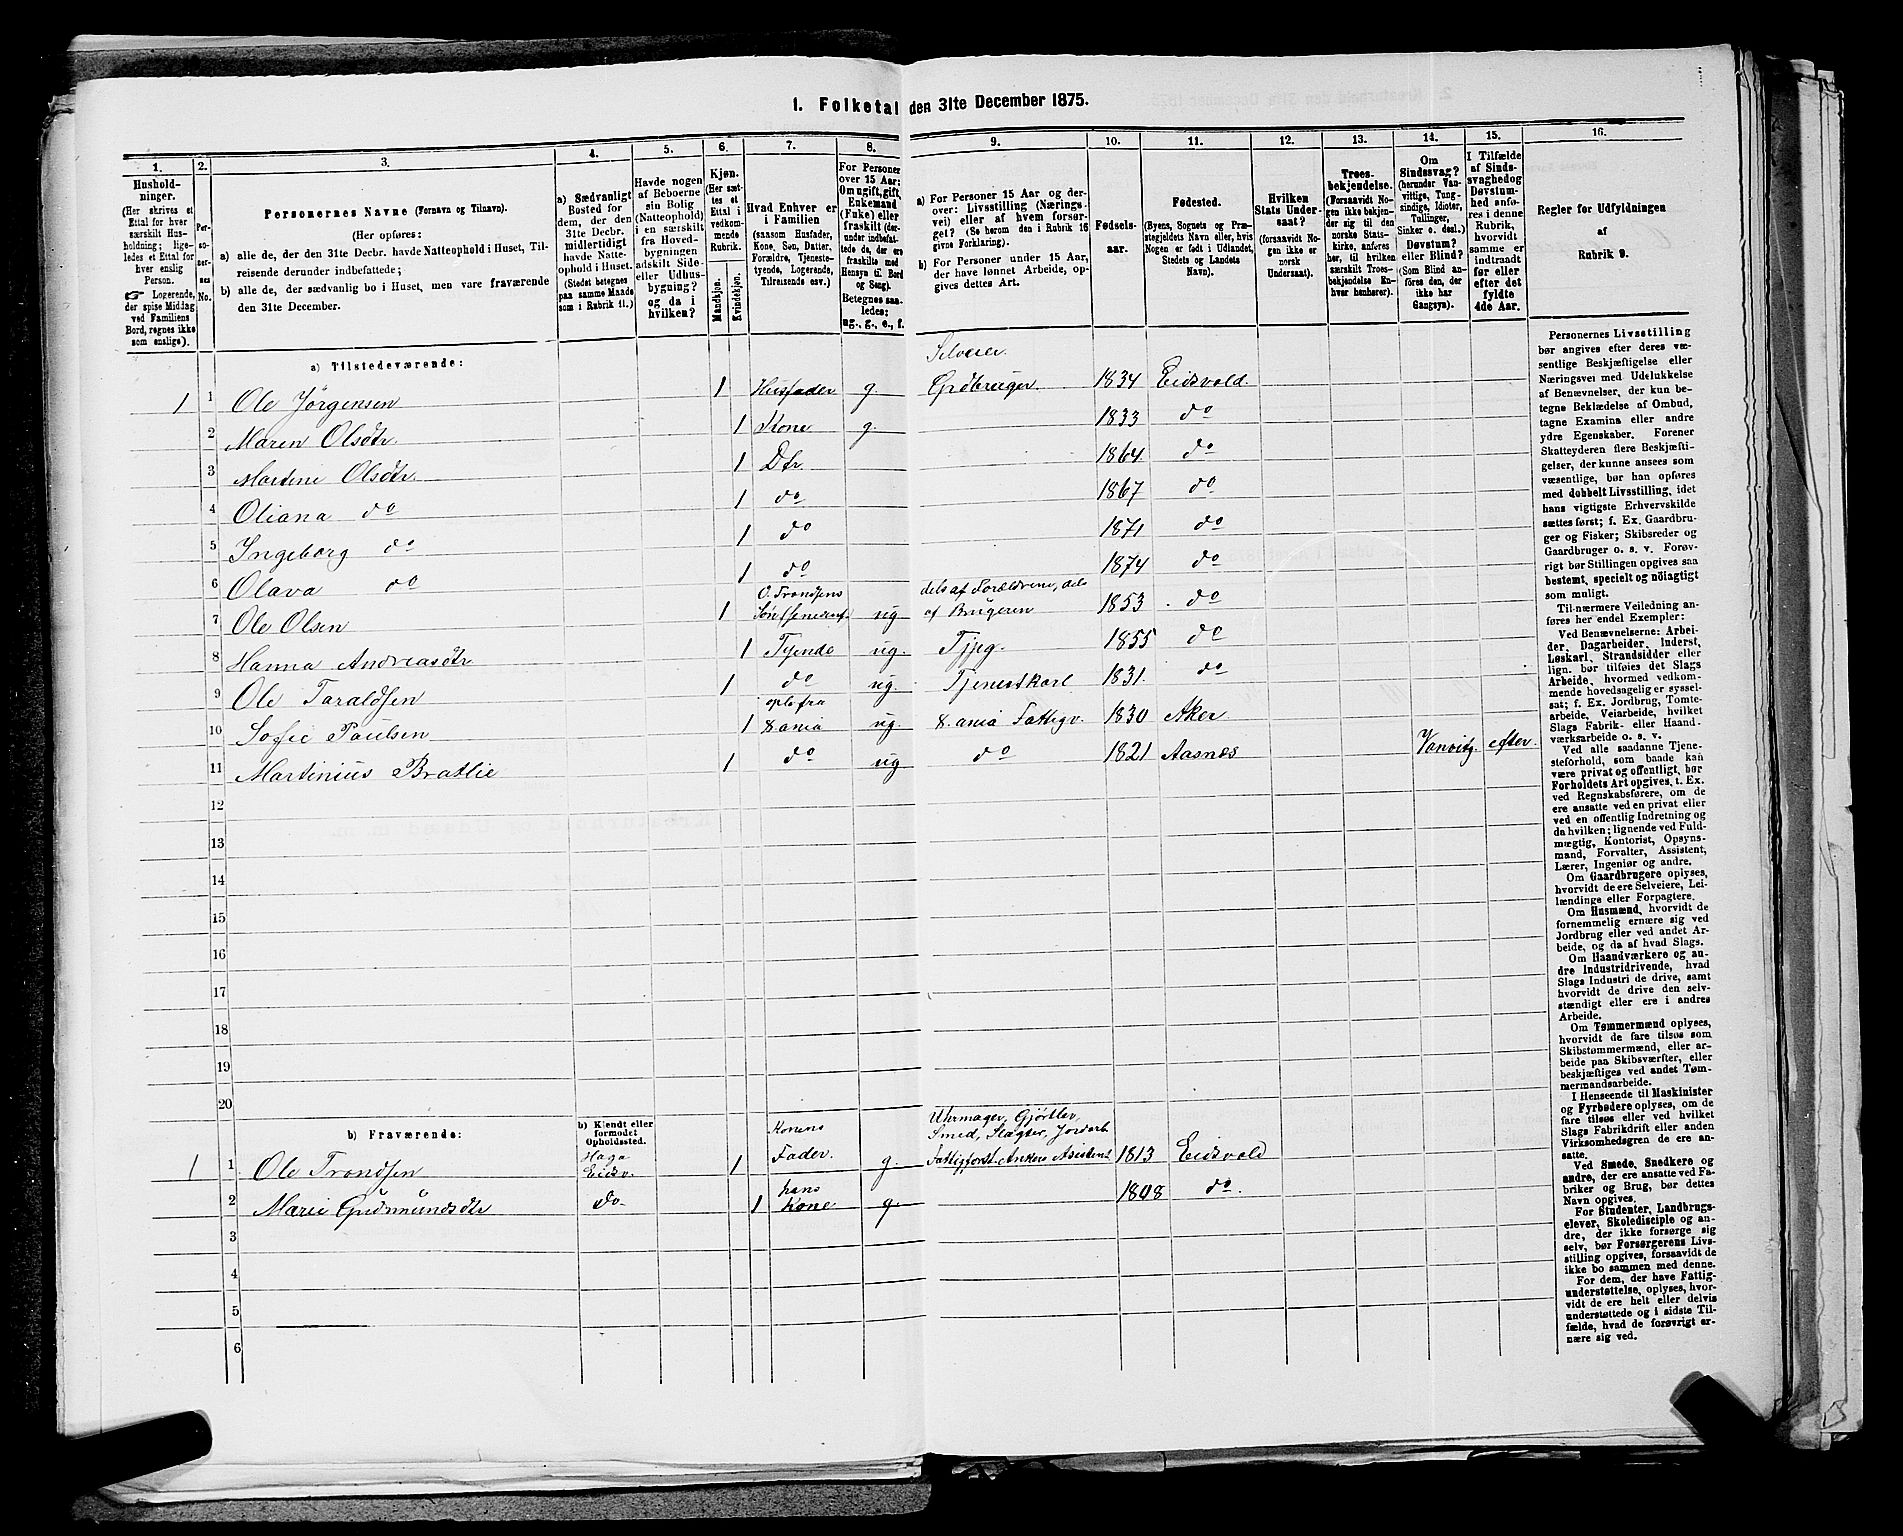 1. Folketal den 31te December 1875.
1. 2. 3. 4. 5. 6. 7. 8. 9. 10. 11. 12. 13. 14. 15. 16.
Hushold-
ninger.
(Her skrives et
Ettal for hver
særskilt Hus-
holdning; lige-
ledes et Ettal for
hver enslig
Person.
☞ Logerende,
der spise Middag
ved Familiens
Bord, regnes ikke
som enslige).
Per-
so-
ner-
nes
No.
Personernes Navne (Fornavn og Tilnavn).
(Her opføres:
a) alle de, der den 31te Decbr. havde Natteophold i Huset, Til-
reisende derunder indbefattede;
b) alle de, der sædvanlig bo i Huset, men vare fraværende
den 31te December.
a) Sædvanligt
Bosted for
dem, der den
31te Decbr.
midlertidigt
havde Natte-
ophold i Huset.
(Stedet betegnes
paa samme Maade
som i Rubrik 11.)
Havde nogen
af Beboerne
sin Bolig
(Natteophold)
i en særskilt
fra Hoved-
bygningen
adskilt Side-
eller Udhus-
bygning?
og da i
hvilken?
Kjøn.
(Her sæt-
tes et
Ettal i
vedkom-
mende
Rubrik.
Mandkjøn.
Kvindekjøn.
Hvad Enhver er
i Familien
(saasom Husfader,
Kone, Søn, Datter,
Forældre, Tjeneste-
tyende, Logerende,
Tilreisende osv.)
For Personer
over 15 Aar:
Om ugift, gift,
Enkemand
(Enke) eller
fraskilt (der-
under indbefat-
tede de, der ere
fraskilte med
Hensyn til Bord
og Seng).
Betegnes saa-
ledes:
ug., g., e., f.
a) For Personer 15 Aar og der-
over: Livsstilling (Nærings-
vei) eller af hvem forsør-
get? (Se herom den i Rubrik 16
givne Forklaring).
b) For Personer under 15 Aar,
der have lønnet Arbeide, op-
gives dettes Art.
Fødsels-
aar.
Fødested.
(Byens, Sognets og Præ-
stegjeldets Navn eller, hvis
Nogen er født i Udlandet,
Stedets og Landets
Navn).
Hvilken
Stats Under-
saat?
(forsaavidt No-
gen ikke er
norsk
Undersaat).
Troes-
bekjendelse.
(Forsaavidt No-
gen ikke bekjen-
der sig til den
norske Stats-
kirke, anføres
her, til hvilken
særskilt Troes-
bekjendelse En-
hver henhører).
Om
Sindssvag?
(herunder Van-
vittige, Tung-
sindige, Idioter,
Tullinger,
Sinker o. desl.)
Døvstum?
eller Blind?
(Som Blind an-
føres den, der
ikke har
Gangsyn).
I Tilfælde
af Sinds-
svaghed og
Døvstum-
hed anfø-
res i denne
Rubrik,
hvorvidt
samme er
indtraadt
før eller
efter det
fyldte
4de Aar.
Regler for Udfyldningen
af
Rubrik 9.
a) Tilstedeværende:
Selveier.
1 1 Ole Jörgensen 1 Husfader g. Grdbruger. 1834 Eidsvold.
2 Maren Olsdtr 1 Kone g. 1833 do
3 Martine Olsdtr. 1 Dtr. 1864 do
4 Oliana do 1 do 1867 do
5 Ingeborg do 1 do 1871 do
6 Olava do 1 do 1874 do
O. Trondsens dels af Forældrene, dels
7 Ole Olsen 1 ug af Brugeren 1853 do
8 Hanna Andreasdtr 1 Tyende ug. Tjpg. 1855 do
9 Ole Taraldsen 1 do ug. Tjenestkarl 1831. do
opls fra
10 Sofie Paulsen 1 X.ania ug. X.ania Fattigv. 1830 Aker
11 Martinius Bratlie 1 do ug do 1821 Aasnes Vanvitg. efter.
12
13
14
15
16
17
18
19
20
b) Fraværende:
b) Kjendt eller
formodet
Opholdssted.
Uhrmager, Gjörtler,
Konens Smed, Slagter, Jordarb
1 1 Ole Trondsen Haga Eidsv. 1 Fader. g. Fattigforst. Ankers Asistent 1813 Eidsvold
2 Marie Gudmundsdtr do. 1 hans Kone g. 1808 do.
3
4
5
6
Personernes Livsstilling
bør angives efter deres væ-
sentlige Beskjæftigelse eller
Næringsvei med Udelukkelse
af Benævnelser, der kun be-
tegne Beklædelse af Ombud,
tagne Examina eller andre
ydre Egenskaber. Forener
Skatteyderen flere Beskjæfti-
gelser, der kunne ansees som
væsentlige, bør han opføres
med dobbelt Livsstilling, idet
hans vigtigste Erhvervskilde
sættes først; f. Ex. Gaardbru-
ger og Fisker; Skibsreder og
Gaardbruger o. s. v. Forøv-
rigt bør Stillingen opgives saa
bestemt, specielt og nöiagtigt
som muligt.
Til nærmere Veiledning an-
føres her endel Exempler:
Ved Benævnelserne: Arbei-
der, Dagarbeider, Inderst,
Løskarl, Strandsidder eller
lign. bør tilføies det Slags
Arbeide, hvormed vedkom-
mende hovedsagelig er syssel-
sat; f. Ex. Jordbrug, Tomte-
arbeide, Veiarbeide, hvilket
Slags Fabrik- eller Haand-
værksarbeide o. s. v.
Ved alle saadanne Tjene-
steforhold, som baade kan
være privat og offentligt, bør
Forholdets Art opgives, t. Ex.
ved Regnskabsførere, om de
ere ansatte ved en privat eller
ved en offentlig Indretning og
da hvilken; lignende ved Fuld-
mægtig, Kontorist, Opsyns-
mand, Forvalter, Assistent,
Lærer, Ingeniør og andre.
Om Gaardbrugere oplyses,
hvorvidt de ere Selveiere, Lei-
lændinge eller Forpagtere.
Om Husmænd, hvorvidt de
fornemmelig ernære sig ved
Jordbrug eller ved andet Ar-
beide, og da af hvad Slags.
Om Haandværkere og an-
dre Industridrivende, hvad
Slags Industri de drive, samt
hvorvidt de drive den selv-
stændigt eller ere i andres
Arbeide.
Om Tømmermænd oplyses,
hvorvidt de fare tilsøs som
Skibstømmermænd, eller ar-
beide paa Skibsværfter, eller
beskjæftiges ved andet Tøm-
mermandsarbeide.
I Henseende til Maskinister
og Fyrbødere oplyses, om de
fare tilsøs eller ved hvilket
Slags Fabrikdrift eller anden
Virksomhedsgren de ere an-
satte.
Ved Smede, Snedkere og
andre, der ere ansatte ved Fa-
briker og Brug, bør dettes
Navn opgives.
For Studenter, Landbrugs-
elever, Skoledisciple og an-
dre, der ikke forsørge sig
selv, bør Forsørgerens Livs-
stilling opgives, forsaavidt de
ikke bo sammen med denne.
For dem, der have Fattig-
understøttelse, oplyses, hvor-
vidt de ere helt eller delvis
understøttede og i sidste Til-
fælde, hvad de forøvrigt er-
nære sig ved.